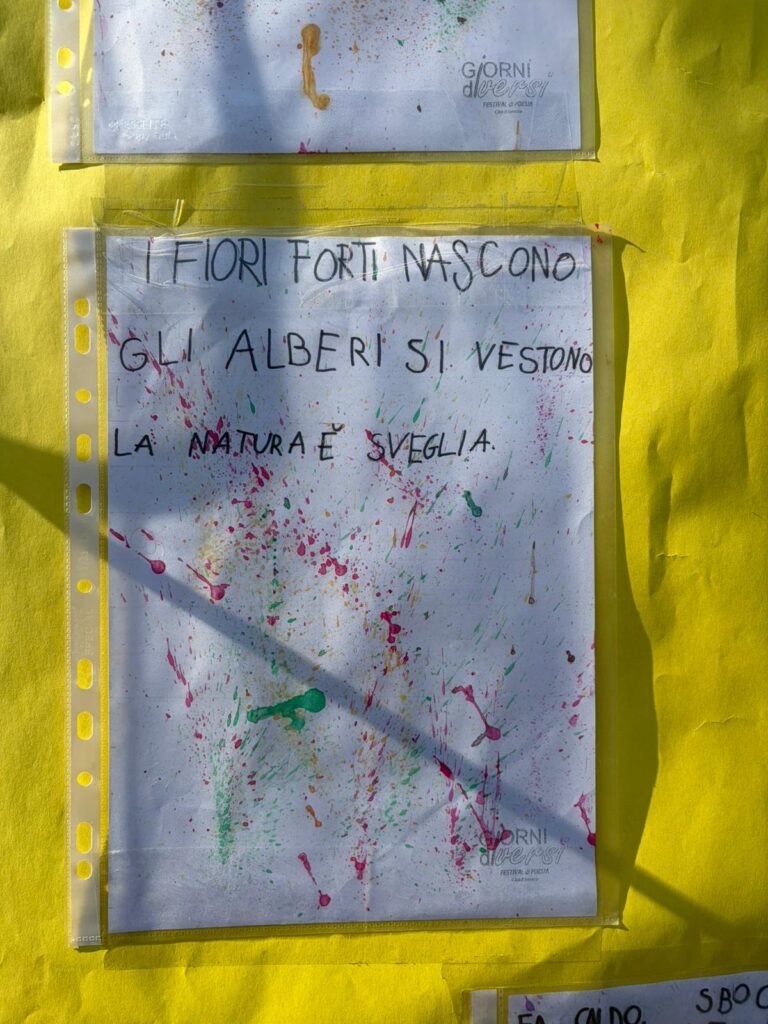 GIORNI
diversi
FESTIVAL di POESIA
I FIORI FORTI NASCONO
GLI ALBERI SI VESTONO
LA NATURA È SVEGLIA.
GIORNI
diversi
FESTIVAL di POESIA
FA CALDO. SBOC